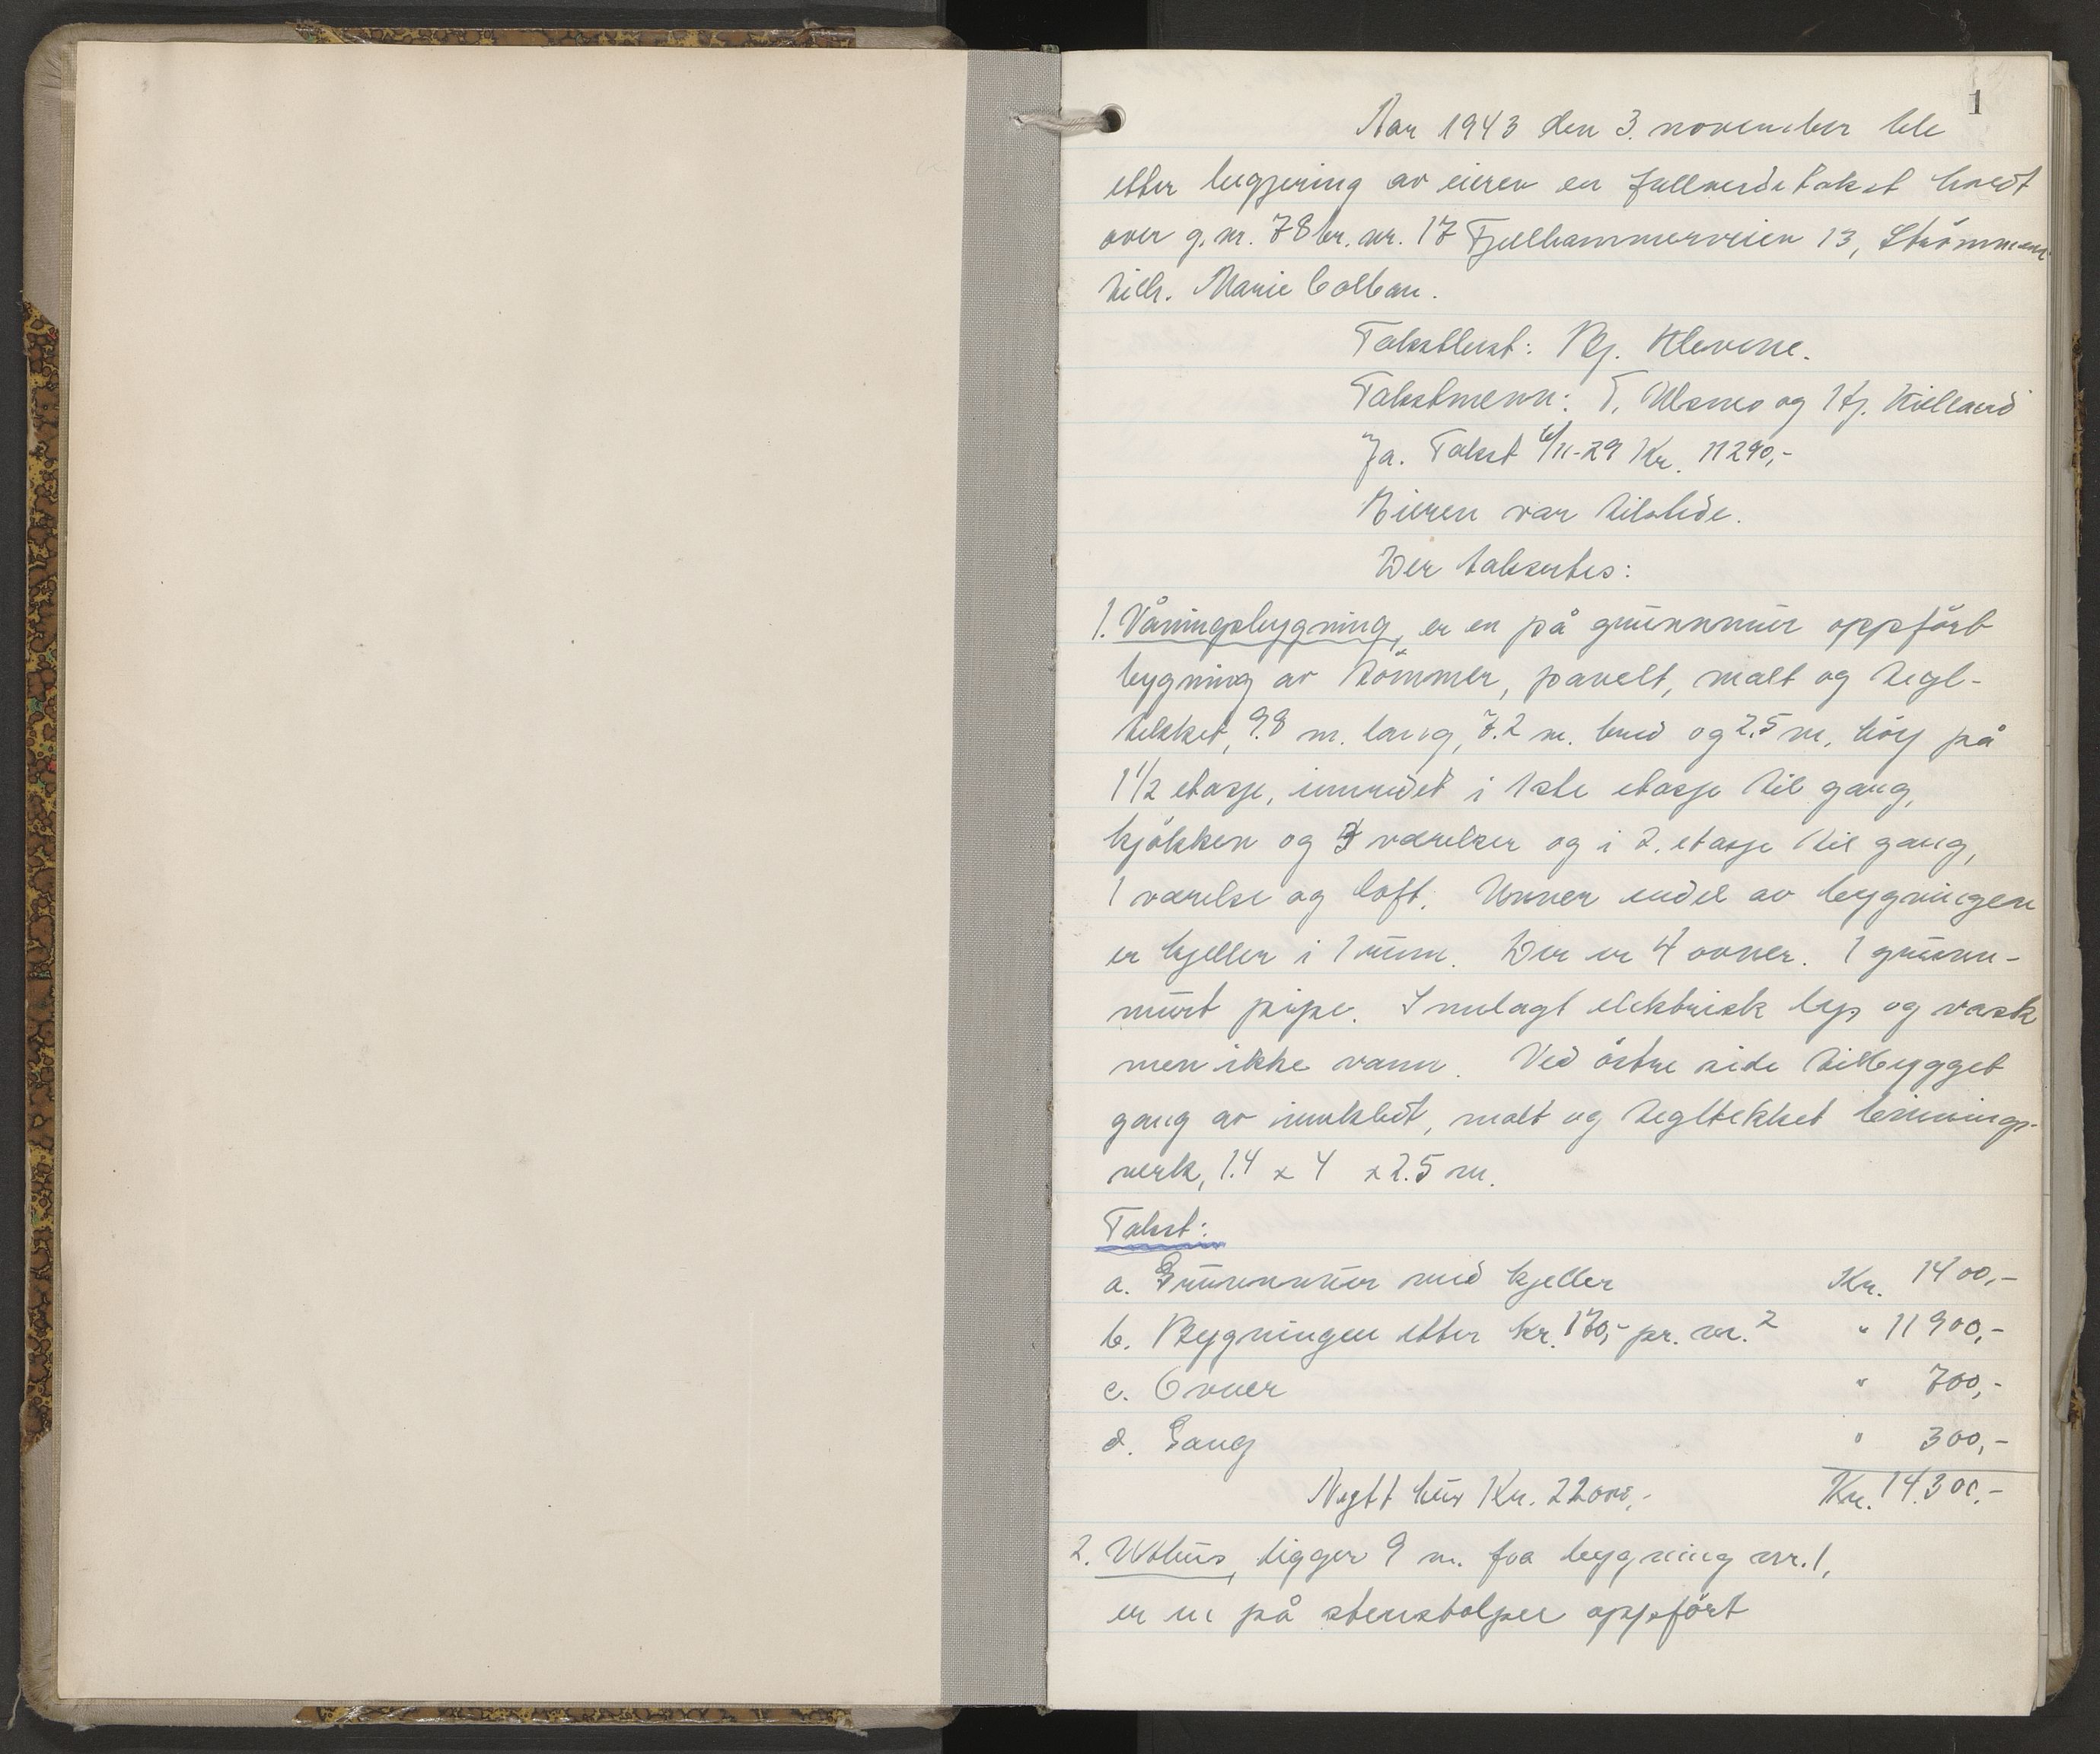 1
Aar 1943 den 3. november ble
etter begjering av eieren en fullverditakst holdt
over g.nr. 78 br. nr. 17 Fjellhammerveien 13, Strömmen
tilh. Marie Colban.
Takstbest: Bj. Klevene.
Takstmenn: T. Ulsmo og Kj. Kielland
Fa. Takst 6/11-29 Kr. 11290,-
Eieren var tilstede.
Der taksertes:
1. Våningsbygning, er en på grunnmur oppfört
bygning av tömmer, panelt, malt og tegl-
tekket, 9.8 m. lang, 7.2 m. bred og 2.5 m. höy på
1 1/2 etasje, innredet i 1ste etasje til gang,
kjökken og 3 værelser og i 2. etasje til gang,
1 værelse og loft. Unner endel av bygningen
er kjeller i 1 rum. Der er 4 ovner. 1 grunn-
murt pipe. Innlagt elektrisk lys og vask
men ikke vann. Ved östre side tilbygget
gang av utekledt, malt og tegltekket binnings-
verk, 1.4 x 4 x 2.5 m.
Takst:
a. Grunnmur med kjeller Kr. 1400,-
b. Bygningen etter kr. 170,- pr. m.2 " 11900,-
c. Ovner " 700,-
d. Gang " 300,-
Nytt hus Kr. 22000,- Kr. 14.300,-
2. Uthus, ligger 9 m. fra bygning nr. 1,
er en på stenstolper oppfört